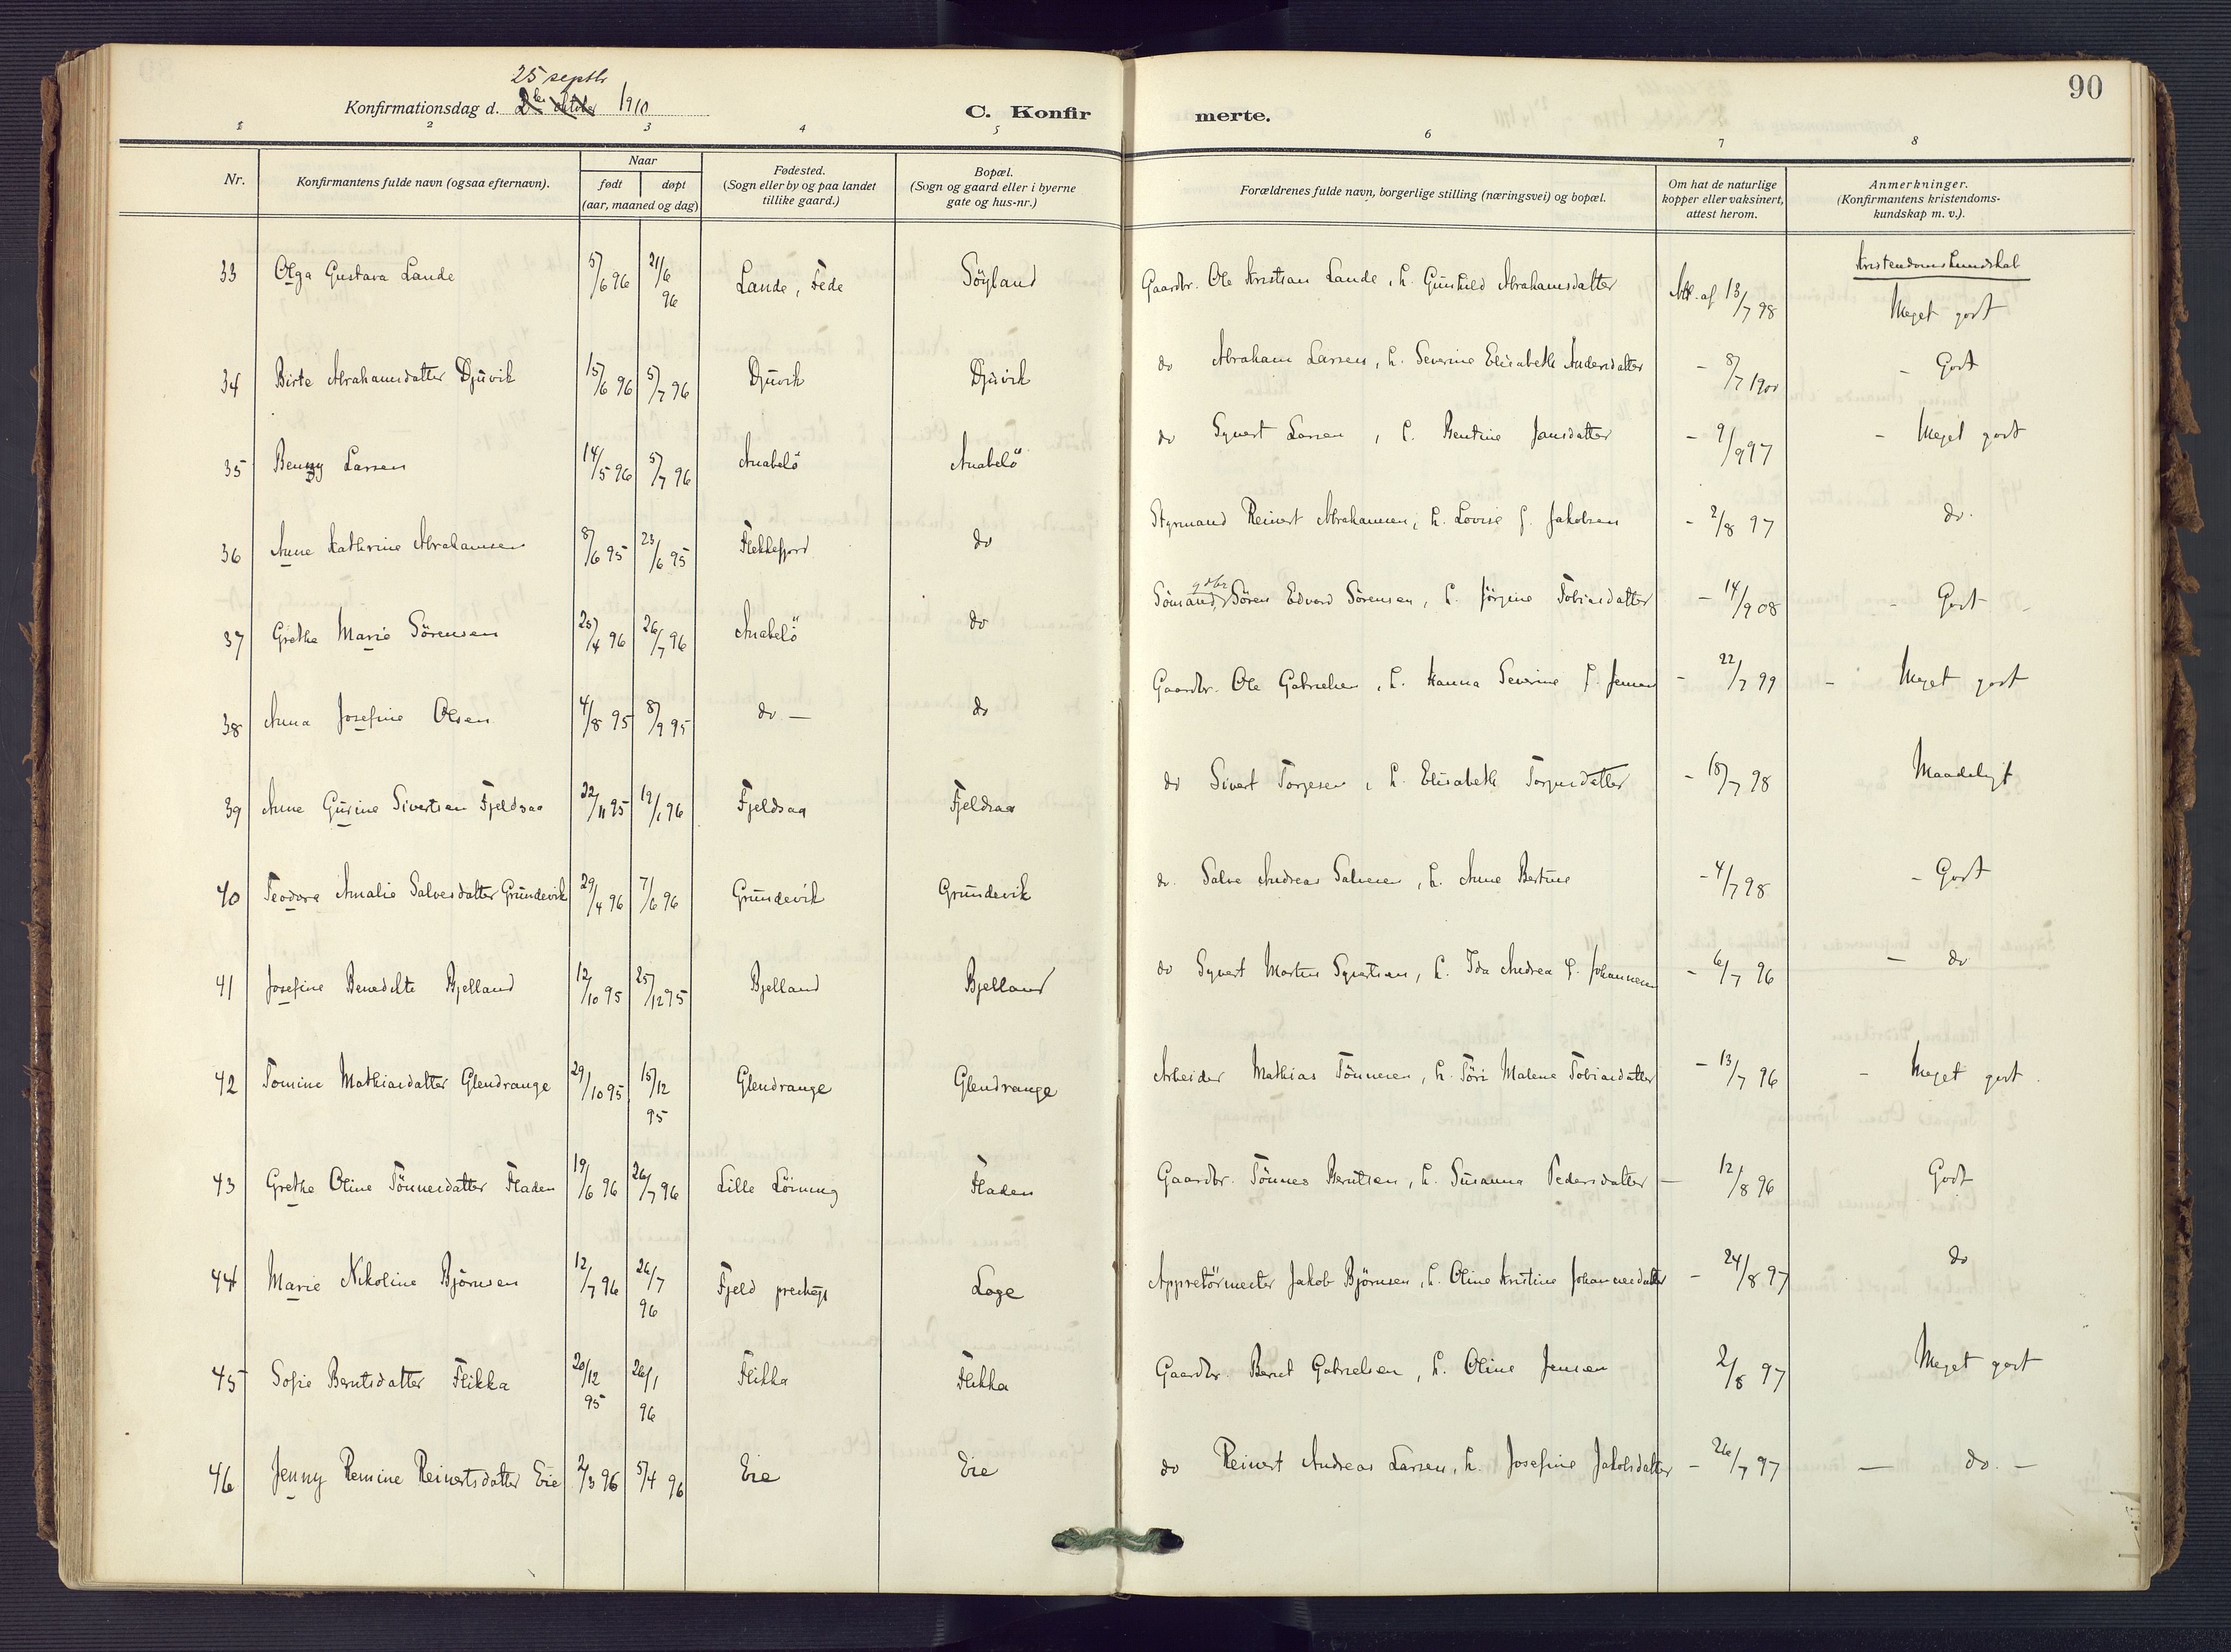 90
25 septbr
Konfirmationsdag d. 2den oktober 1910
C. Konfir merte.
1 2 3 4 5 6 7 8
Nr.
Konfirmantens fulde navn (ogsaa efternavn).
Naar
født døpt
(aar, maaned og dag)
Fødested.
(Sogn eller by og paa landet
tillike gaard.)
Bopæl.
(Sogn og gaard eller i byerne
gate og hus-nr.)
Forældrenes fulde navn, borgerlige stilling (næringsvei) og bopæl.
Om hat de naturlige
kopper eller vaksinert,
attest herom.
Anmerkninger.
(Konfirmantens kristendoms-
kundskap m. v.).
Kristendomskundskab
33 Olga Gustava Lande 5/6 96 21/6 96 Lande, Fede Söyland Gaardbr. Ole Kristian Lande, h. Gunhild Abrahamsdatter Att. af 13/7 98 Meget godt
34 Birte Abrahamsdatter Djuvik 15/6 96 5/7 96 Djuvik Djuvik do Abraham Larsen, h. Severine Elisabeth Andersdatter - 8/7 1900 - Godt
35 Benny Larsen 14/5 96 5/7 96 Anabelö Anabelö do Syvert Larsen, h. Bentine Jansdatter - 9/9 97 - Meget godt
36 Anne Kathrine Abrahamsen 8/6 95 23/6 95 Flekkefjord do Styrmand Reinert Abrahamsen, h. Lovise f. Jakobsen - 2/8 97 do.
37 Grethe Marie Sörensen 25/4 96 26/7 96 Anabelö do Sömand, gdbr Sören Edvard Sörensen, h. Jörgine Tobiasdatter - 14/9 08 - Godt -
38 Anna Josefine Olsen 4/8 95 8/9 95 do - do Gaardbr. Ole Gabrielsen, h. Hanna Severine f. Jensen - 22/7 99 - Meget godt
39 Anne Gurine Sivertsen Fjeldsaa 22/11 95 19/1 96 Fjeldsaa Fjeldsaa do Sivert Torjesen, h. Elisabeth Torjusdatter - 18/7 98 Maadeligt
40 Teodora Amalie Salvesdatter Grundevik 29/4 96 7/6 96 Grundevik Grundevik do. Salve Andreas Salvesen, h. Anne Bertine - 4/7 98 - Godt
41 Josefine Benedikte Bjelland 12/10 95 25/12 95 Bjelland Bjelland do Syvert Martin Syvertsen, h. Ida Andrea f. Johannesen - 6/7 96 - do
42 Tomine Mathiasdatter Glendrange 29/10 95 15/12 95 Glendrange Glendrange Arbeider Mathias Tönnesen, h. Töri Malene Tobiasdatter - 13/7 96 - Meget godt.
43 Grethe Oline Tönnesdatter Fladen 19/6 96 26/7 96 Lille Löining Fladen Gaardbr. Tönnes Berntsen, h. Susanna Pedersdatter - 12/8 96 Godt
44 Marie Nikoline Björnsen 12/7 96 26/7 96 Fjeld prestegj Loge Appretörmester Jakob Björnsen, h. Oline Kristine Johannesdatter - 24/8 97 do
45 Sofie Berntsdatter Flikka 20/12 95 26/1 96 Flikka Flikka Gaardbr. Bernt Gabrielsen, h. Oline Jensen 2/8 97 Meget godt
46 Jenny Remine Reinertsdatter Eie 2/3 96 5/4 96 Eie Eie do Reinert Andreas Larsen, h. Josefine Jakobsdatter - 26/7 97 - do. -